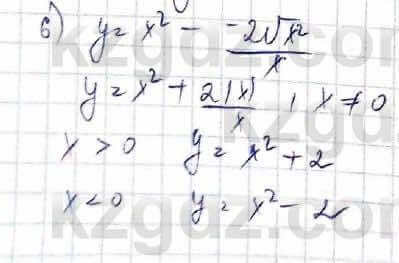 6) y = x² - -2√x²/x
y = x² + 2|x|/x , x ≠ 0
x > 0 y = x² + 2
x < 0 y = x² - 2
kzgdz.com